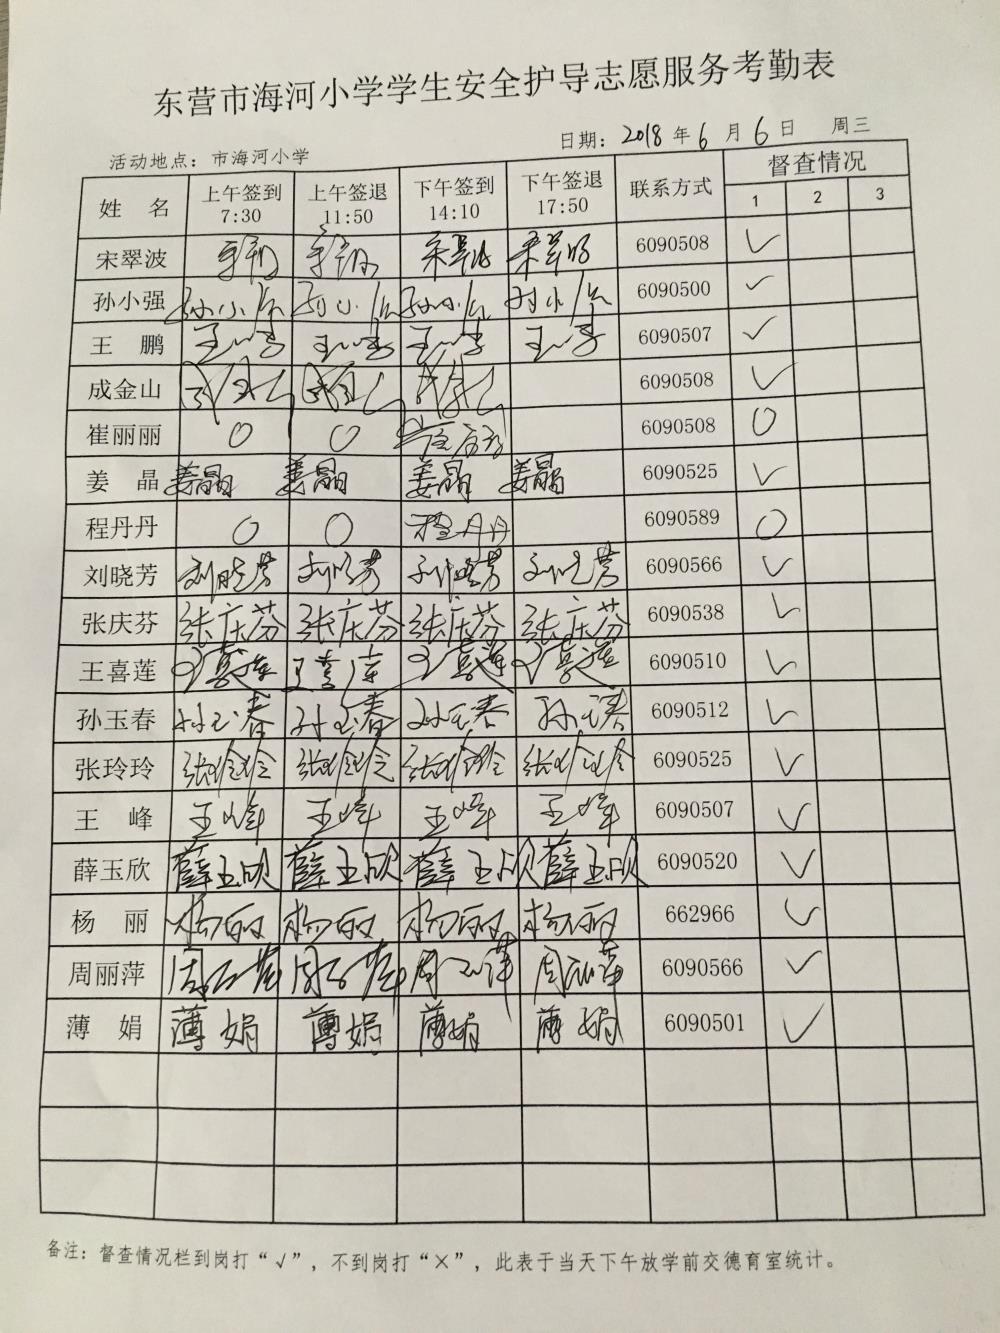 东营市海河小学学生安全护导志愿服务考勤表
活动地点：市海河小学 日期：2018年6月6日 周三
姓 名 上午签到 7:30 上午签退 11:50 下午签到 14:10 下午签退 17:50 联系方式 督查情况 1 2 3
宋翠波 宋翠波 宋翠波 6090508 √
孙小强 孙小强 孙小强 孙小强 孙小强 6090500 √
王 鹏 王鹏 王鹏 王鹏 王鹏 6090507 √
成金山 成金山 成金山 成金山 6090508 √
崔丽丽 O O 崔丽丽 6090508 O
姜 晶 姜晶 姜晶 姜晶 姜晶 6090525 √
程丹丹 O O 程丹丹 6090589 O
刘晓芳 刘晓芳 刘晓芳 刘晓芳 刘晓芳 6090566 √
张庆芬 张庆芬 张庆芬 张庆芬 张庆芬 6090538 √
王喜莲 王喜莲 王喜莲 王喜莲 王喜莲 6090510 √
孙玉春 孙玉春 孙玉春 孙玉春 孙玉春 6090512 √
张玲玲 张玲玲 张玲玲 张玲玲 张玲玲 6090525 √
王 峰 王峰 王峰 王峰 王峰 6090507 √
薛玉欣 薛玉欣 薛玉欣 薛玉欣 薛玉欣 6090520 √
杨 丽 杨丽 杨丽 杨丽 杨丽 662966 √
周丽萍 周丽萍 周丽萍 周丽萍 周丽萍 6090566 √
薄 娟 薄娟 薄娟 薄娟 薄娟 6090501 √
备注：督查情况栏到岗打“√”，不到岗打“×”，此表于当天下午放学前交德育室统计。